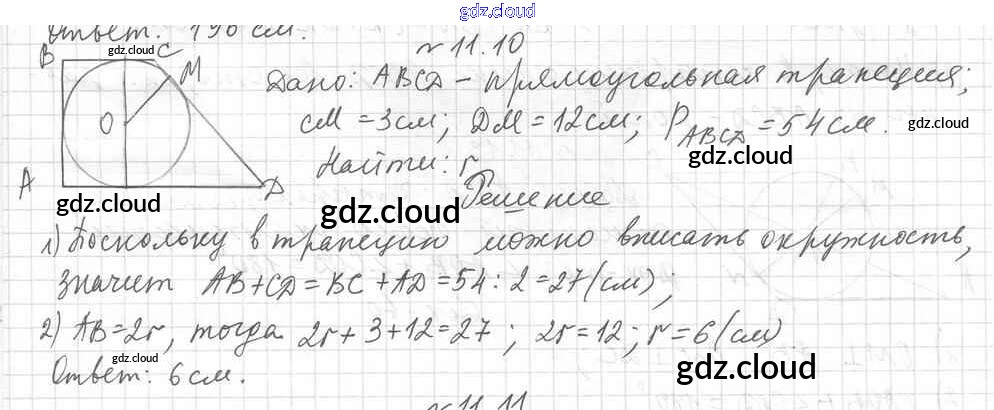 gdz.cloud
Ответ: 196 см.
gdz.cloud
№ 11.10
B C M
Дано: ABCD - прямоугольная трапеция;
O
CM = 3см; DM = 12см; P ABCD = 54 см.
gdz.cloud
gdz.cloud
Найти: r
A D
gdz.cloud
gdz.cloud
Решение
1) Поскольку в трапецию можно вписать окружность,
значит AB + CD = BC + AD = 54 : 2 = 27 (см);
2) AB = 2r, тогда 2r + 3 + 12 = 27; 2r = 12; r = 6 (см)
gdz.cloud
gdz.cloud
Ответ: 6 см.
№ 11.11